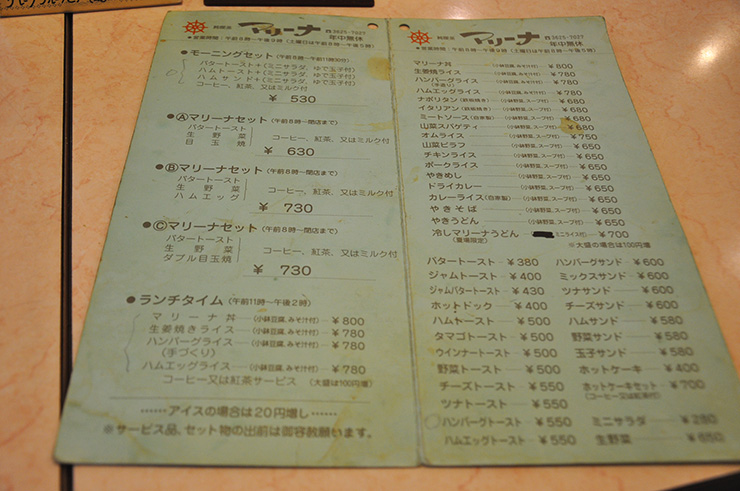 純喫茶 マリーナ ☎3625-7027
年中無休
●営業時間：午前8時〜午後9時（土曜日は午前8時〜午後5時）
●モーニングセット（午前8時〜午前11時00分）
バタートースト＋（ミニサラダ、ゆで玉子付）
ハムトースト＋（ミニサラダ、ゆで玉子付）
ハムサンド＋（ミニサラダ、ゆで玉子付）
コーヒー、紅茶、又はミルク付
¥ 530
●Ⓐマリーナセット（午前8時〜閉店まで）
バタートースト
生野菜 コーヒー、紅茶、又はミルク付
目玉焼
¥ 630
●Ⓑマリーナセット（午前8時〜閉店まで）
バタートースト
生野菜 コーヒー、紅茶、又はミルク付
ハムエッグ
¥ 730
●Ⓒマリーナセット（午前8時〜閉店まで）
バタートースト
生野菜 コーヒー、紅茶、又はミルク付
ダブル目玉焼
¥ 730
●ランチタイム（午前11時〜午後2時）
マリーナ丼 （小鉢豆腐、みそ汁付） ¥800
生姜焼きライス （小鉢豆腐、みそ汁付） ¥780
ハンバーグライス （小鉢豆腐、みそ汁付） ¥780
（手づくり）
ハムエッグライス （小鉢豆腐、みそ汁付） ¥780
コーヒー又は紅茶サービス （大盛は100円増）
……アイスの場合は20円増し……
※サービス品、セット物の出前は御容赦願います。
純喫茶 マリーナ ☎3625-7027
年中無休
●営業時間：午前8時〜午後9時（土曜日は午前8時〜午後5時）
マリーナ丼 （小鉢豆腐、みそ汁付） ¥800
生姜焼ライス （小鉢豆腐、みそ汁付） ¥780
ハンバーグライス （小鉢豆腐、みそ汁付） ¥780
（手造り）
ハムエッグライス （小鉢豆腐、みそ汁付） ¥780
ナポリタン（鉄板焼き） （小鉢野菜、スープ付） ¥680
イタリアン（鉄板焼き） （小鉢野菜、スープ付） ¥680
ミートソース（自家製） （小鉢野菜、スープ付） ¥680
山菜スパゲティ （小鉢野菜、スープ付） ¥680
オムライス （小鉢野菜、スープ付） ¥750
山菜ピラフ （小鉢野菜、スープ付） ¥650
チキンライス （小鉢野菜、スープ付） ¥650
ポークライス （小鉢野菜、スープ付） ¥650
やきめし （小鉢野菜、スープ付） ¥650
ドライカレー （小鉢野菜、スープ付） ¥650
カレーライス（自家製） （小鉢野菜、スープ付） ¥650
やきそば （小鉢野菜、スープ付） ¥650
やきうどん （小鉢野菜、スープ付） ¥650
冷しマリーナうどん ミニライス付） ¥700
（夏場限定） ※大盛の場合は100円増
バタートースト ¥380 ハンバーグサンド ¥600
ジャムトースト ¥400 ミックスサンド ¥600
ジャムバタートースト ¥430 ツナサンド ¥600
ホットドック ¥400 チーズサンド ¥600
ハムトースト ¥500 ハムサンド ¥580
タマゴトースト ¥500 野菜サンド ¥580
ウインナートースト ¥500 玉子サンド ¥580
野菜トースト ¥500 ホットケーキ ¥400
チーズトースト ¥550 ホットケーキセット ¥700
ツナトースト ¥550 （コーヒー又は紅茶付）
ハンバーグトースト ¥550 ミニサラダ ¥280
ハムエッグトースト ¥550 生野菜